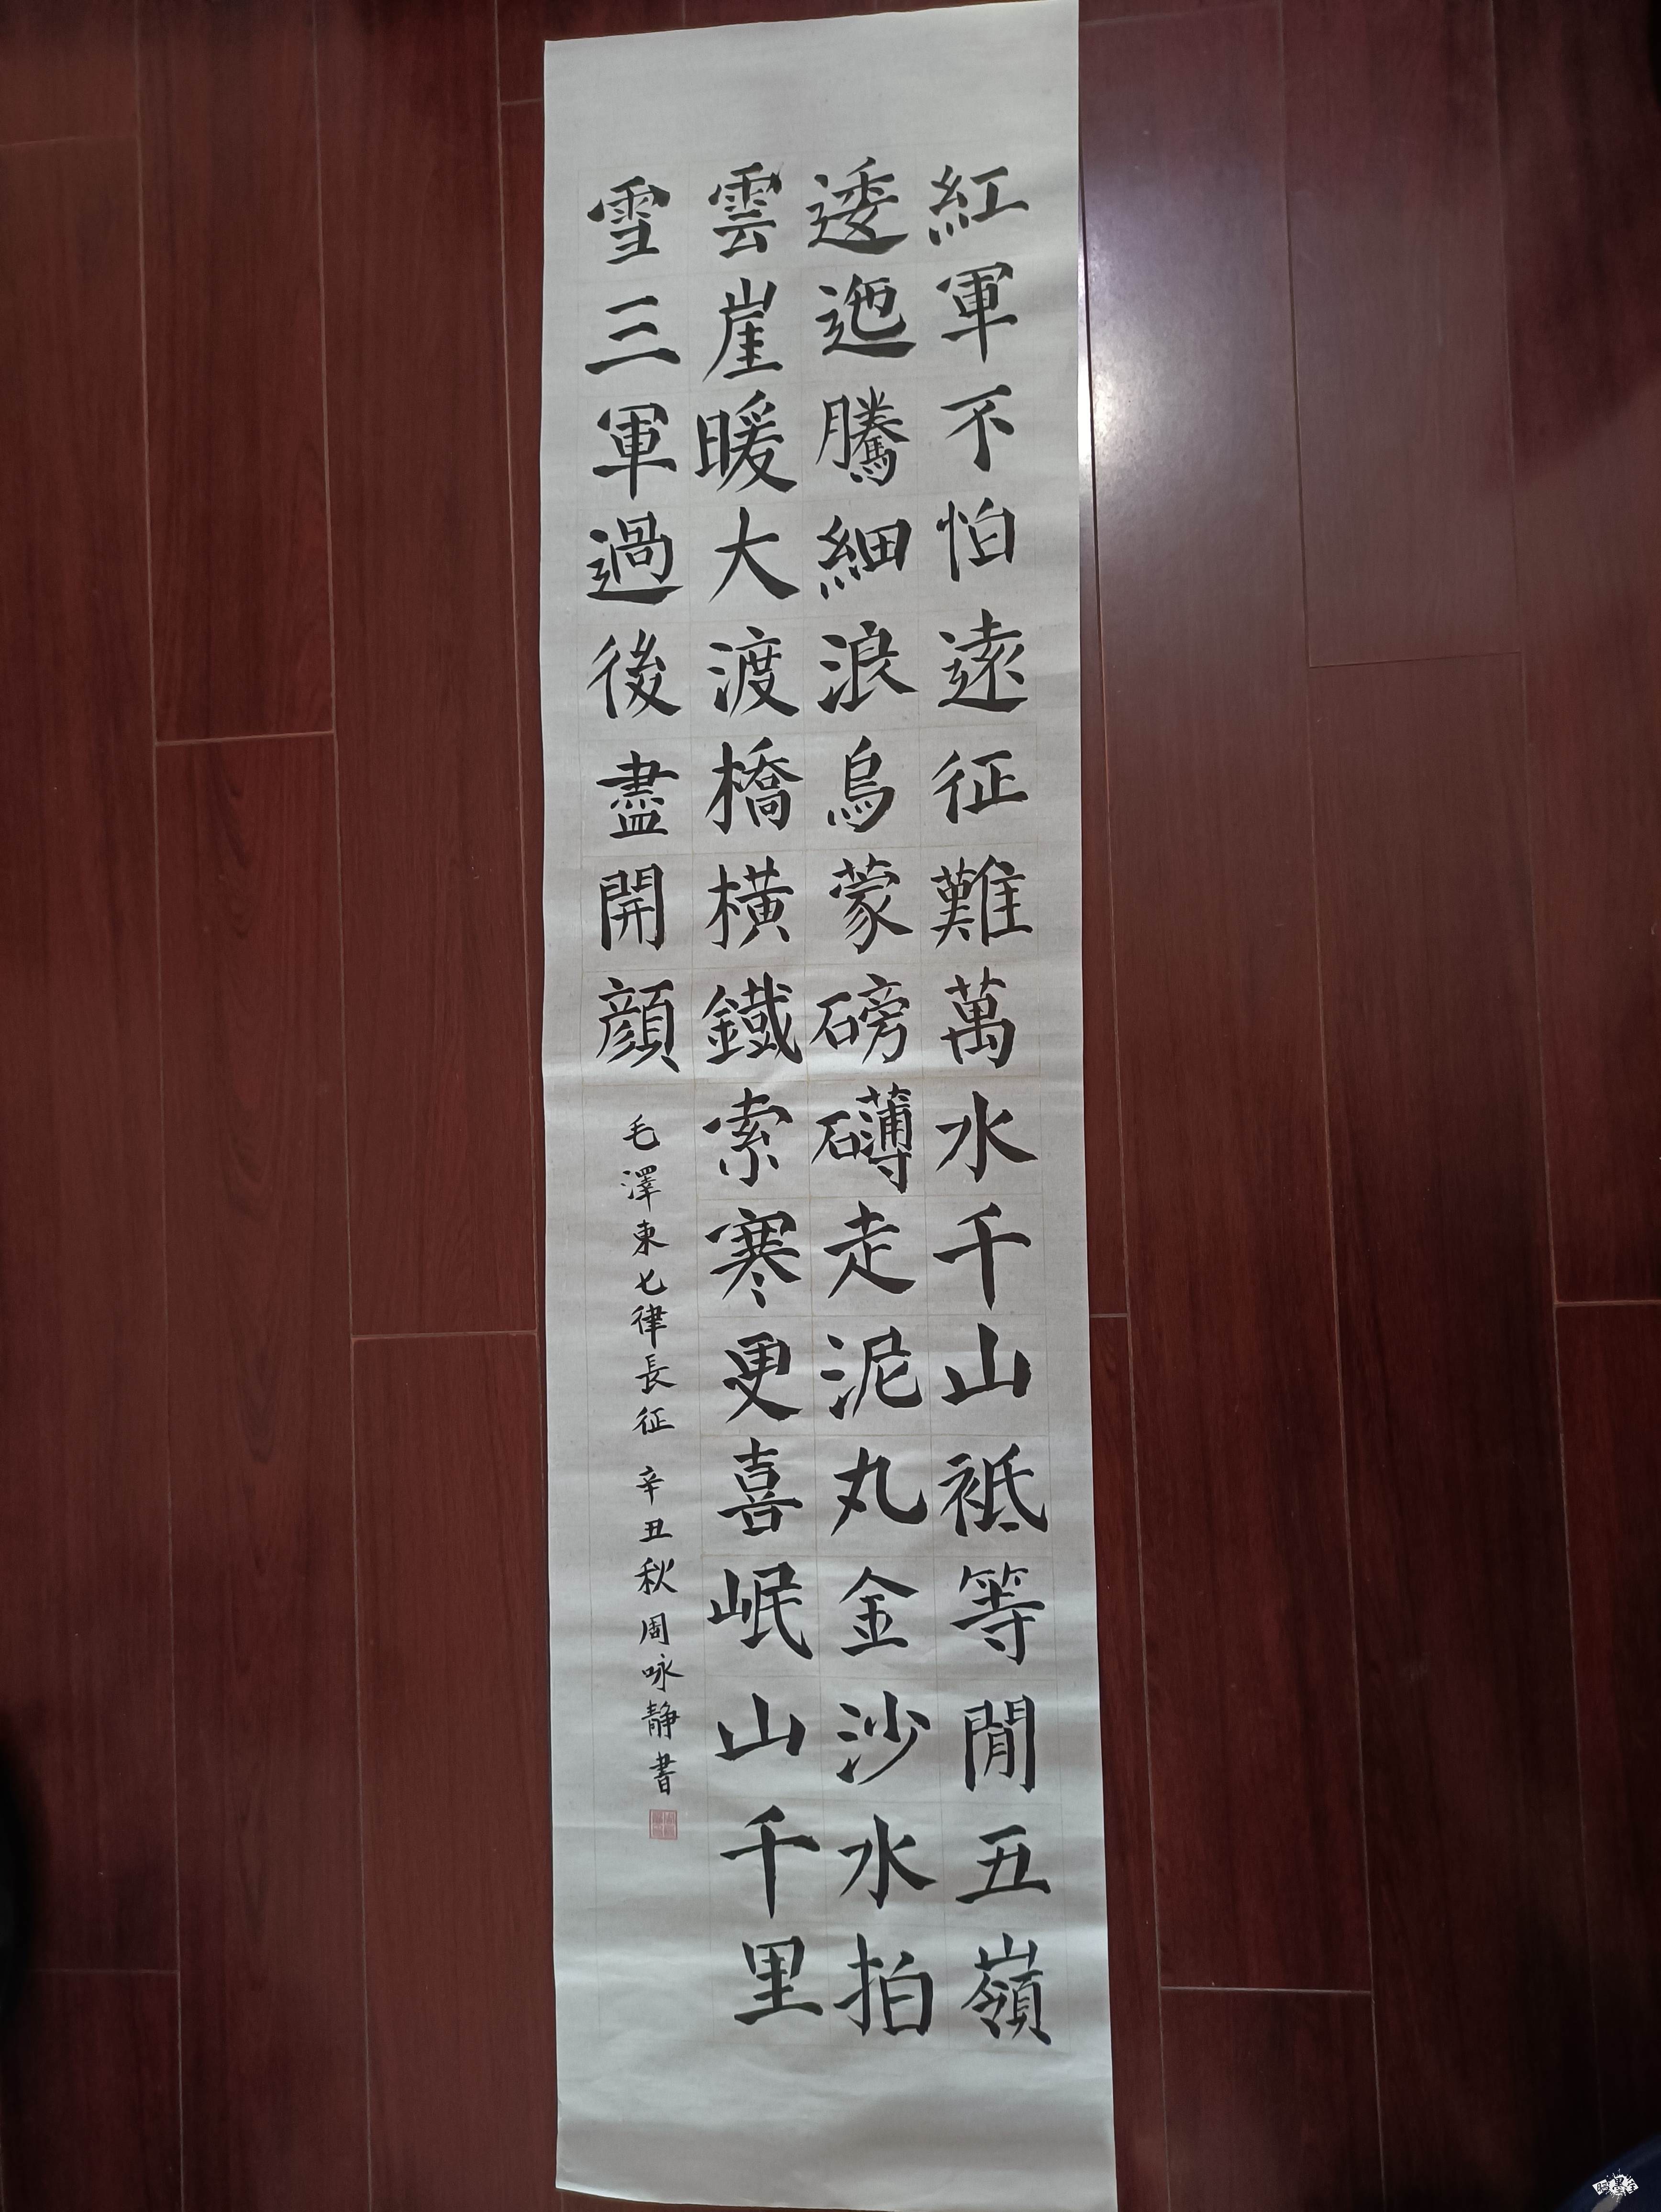 紅軍不怕遠征難萬水千山祗等閒五嶺
逶迤騰細浪烏蒙磅礴走泥丸金沙水拍
雲崖暖大渡橋橫鐵索寒更喜岷山千里
雪三軍過後盡開顔
毛澤東七律長征 辛丑秋周咏靜書